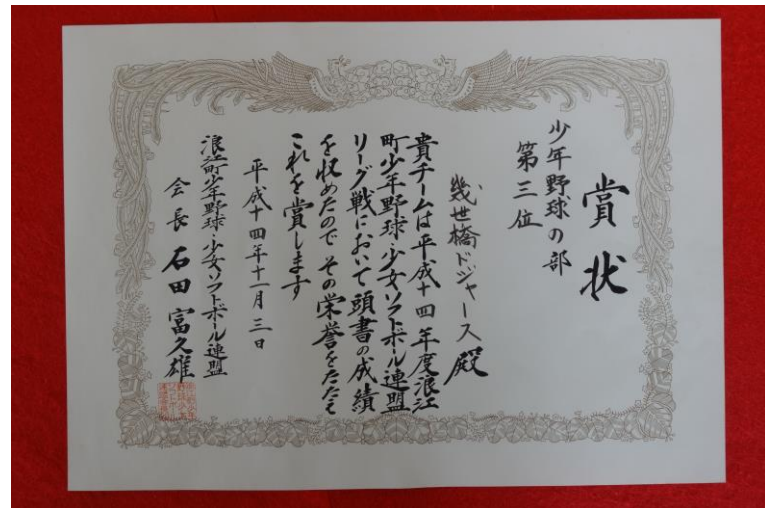 賞状
少年野球の部
第三位
幾世橋ドジャース殿
貴チームは平成十四年度浪江
町少年野球・少女ソフトボール連盟
リーグ戦において頭書の成績
を収めたので その栄誉をたたえ
これを賞します
平成十四年十一月三日
浪江町少年野球・少女ソフトボール連盟
会長 石田富久雄